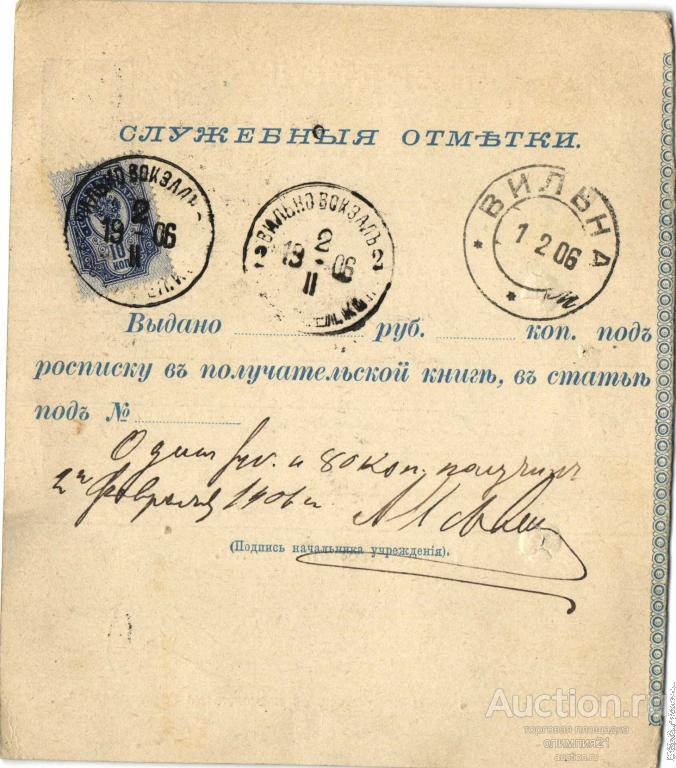 СЛУЖЕБНЫЯ ОТМѢТКИ.
ВИЛЬНО ВОКЗАЛЪ
2
19 06
II
10
КОП
ВИЛЬНО ВОКЗАЛЪ
2
19 06
II
ВИЛЬНА
1 2 06
Выдано руб. коп. подъ
росписку въ получательской книгѣ, въ статьѣ
подъ №
Один руб. и 80 коп. получил
2го февраля 1906 г.
(Подпись начальника учрежденія).
Auction.ru
торговая площадка
олимпия21
auction.ru